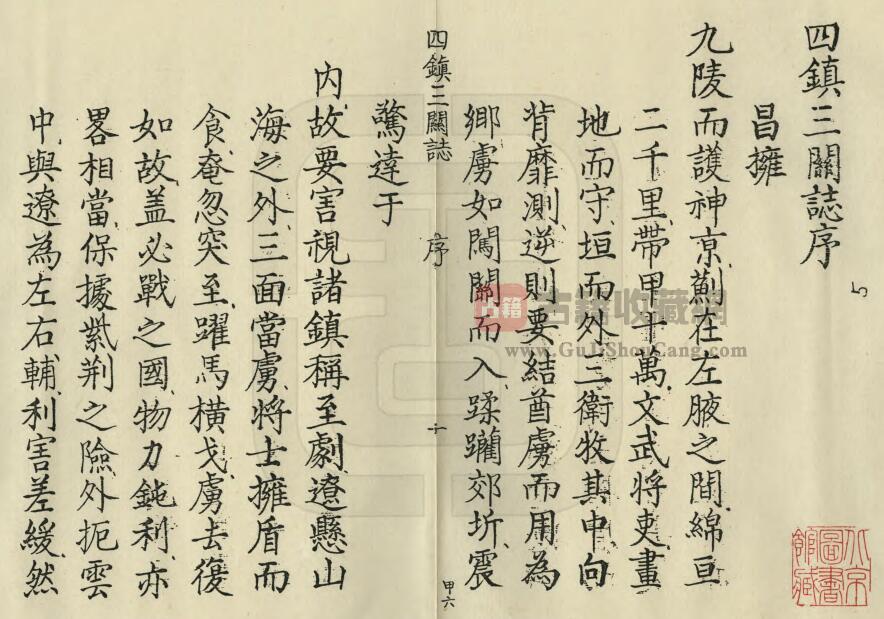 四鎮三關誌序
昌擁
九陵而護神京薊在左腋之間綿亘
二千里帶甲十萬文武將吏畫
地而守垣而外三衛牧其中向
背靡測逆則要結酋虜而用為
鄉虜如闖關而入蹂躪郊圻震
四鎮三關誌 序 十 甲六
驚達于
內故要害視諸鎮稱至劇遼懸山
海之外三面當虜將士擁盾而
食奄忽突至躍馬橫戈虜去復
如故盖必戰之國物力鈍利亦
畧相當保據紫荆之險外扼雲
中與遼為左右輔利害差緩然
古籍 古籍收藏網
www.GuJiShouCang.com